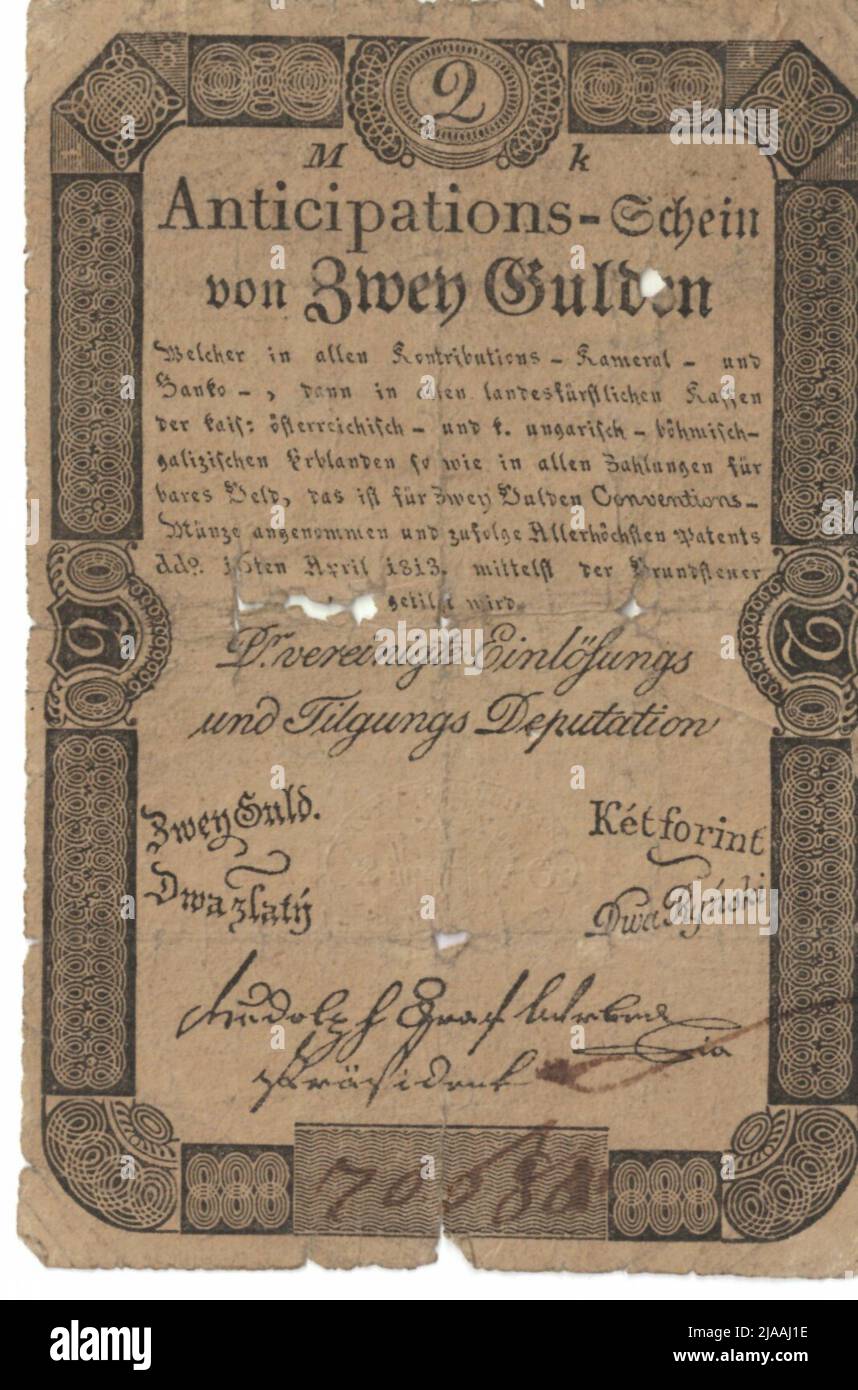 2
M k
Anticipations-Schein
von Zwey Gulden
Welcher in allen Kontributions - Kameral - und
Banko - , dann in allen landesfürstlichen Kassen
der kais: österreichisch - und k. ungarisch - böhmisch-
galizischen Erblanden so wie in allen Zahlungen für
bares Geld, das ist für Zwey Gulden Conventions-
Münze angenommen und zufolge Allerhöchsten Patents
ddo. 16ten April 1813. mittelst der Grundsteuer
getilgt wird.
2 2
Dr vereinigte Einlösungs
und Tilgungs Deputation
Zwey Guld. Két forint
Dwa zlatý Dwa Ryński
Rudolph Graf Wrbna
Präsident
alamy
Image ID: 2JAAJ1E
www.alamy.com